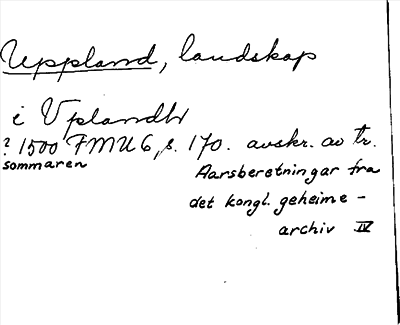 Uppland, landskap
i Vplandh
? 1500 FMU 6, s. 170. avskr. av tr.
sommaren Aarsberetningar fra
det kongl. geheime-
archiv IV